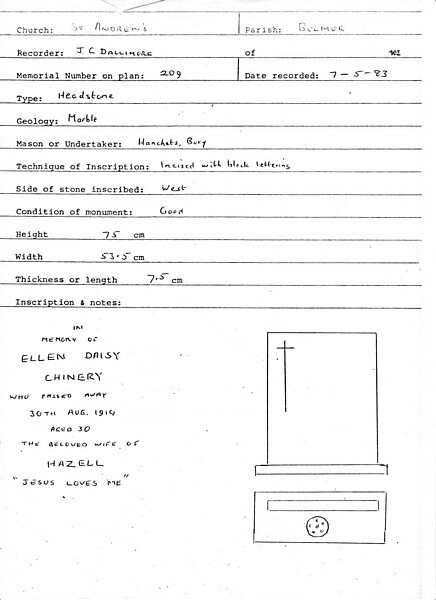 Church: St ANDREW'S Parish: BULMER
Recorder: J C DALLIMORE of WI
Memorial Number on plan: 209 Date recorded: 7-5-83
Type: Headstone
Geology: Marble
Mason or Undertaker: Hanchets, Bury
Technique of Inscription: Incised with black lettering
Side of stone inscribed: West
Condition of monument: Good
Height 75 cm
Width 53.5 cm
Thickness or length 7.5 cm
Inscription & notes:
IN
MEMORY OF
ELLEN DAISY
CHINERY
WHO PASSED AWAY
30TH AUG. 1919
AGED 30
THE BELOVED WIFE OF
HAZELL
"JESUS LOVES ME"